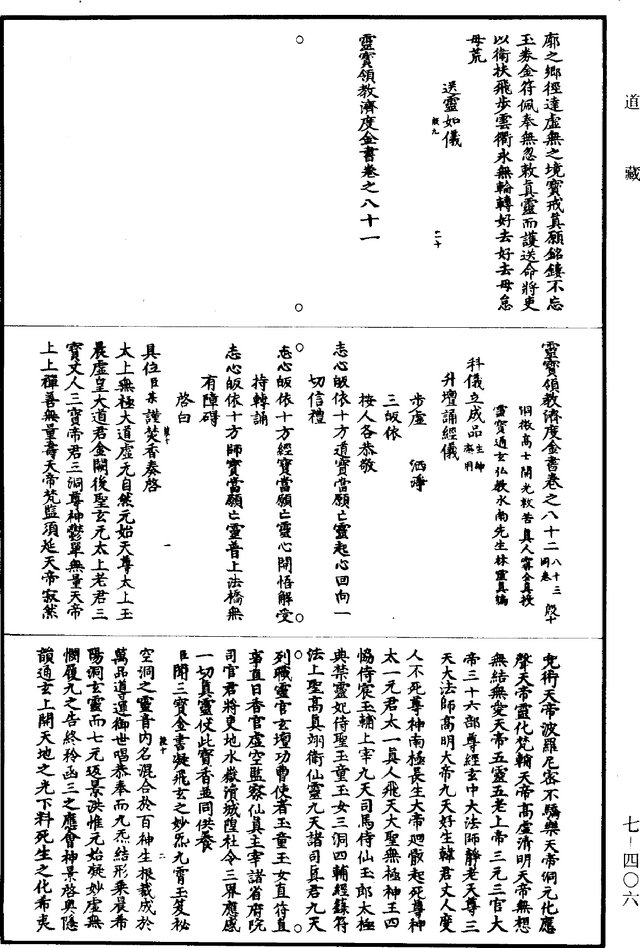 道藏
廓之鄉徑達虛無之境寶戒真願銘鏤不忘
玉券金符佩奉無忽敕真靈而護送命將吏
以衛扶飛步雲衢永無輪轉好去好去毋怠
毋荒
送靈如儀
靈寶領教濟度金書卷之八十一
靈寶領教濟度金書卷之八十二
洞微高士開光救苦真人甯全真授
靈寶通玄弘教水南先生林靈真編
科儀立成品
升壇誦經儀
步虛 洒淨
三皈依
按人各恭敬
志心皈依十方道寶當願亡靈起心回向一
切信禮
志心皈依十方經寶當願亡靈心開悟解受
持轉誦
志心皈依十方師寶當願亡靈普上法橋無
有障碍
啓白
具位臣某謹焚香奏啓
太上無極大道虛无自然元始天尊太上玉
晨虛皇大道君金闕後聖玄元太上老君三
寶丈人三寶帝君三洞尊神鬱單無量天帝
上上禪善無量壽天帝梵監須延天帝寂然
兜術天帝波羅尼密不驕樂天帝洞元化應
聲天帝靈化梵輔天帝高虛清明天帝無想
無結無愛天帝五靈五老上帝三元三官大
帝三十六部尊經玄中大法師靜老天尊三
天大法師高明大帝九天好生韓君丈人度
人不死尊神南極長生大帝迴骸起死尊神
太一元君太一真人飛天大聖無極神王四
恊侍宸玉輔上宰九天司馬侍仙玉郎太極
典禁靈妃侍聖玉童玉女三洞四輔經籙符
法上聖高真翊衛仙靈九天諸司真君九天
列職靈官玄壇功曹使者玉童玉女直符直
事直日香官虛空監察仙真主宰諸省府院
司官君將吏地水嶽瀆城隍社令三界應感
一切真靈仗此寶香並同供養
臣聞三寶金書凝飛玄之妙炁九霄玉笈祕
空洞之靈音内名混合於百神生根載成於
萬品道運御世唱恭奉而九炁結形乘晨希
陽洞玄靈而七元返景洪惟元始凝妙虛無
憫履九之告終矜函三之應會神景啓奧隱
韻通玄上開天地之光下料死生之化希夷
七－四〇六